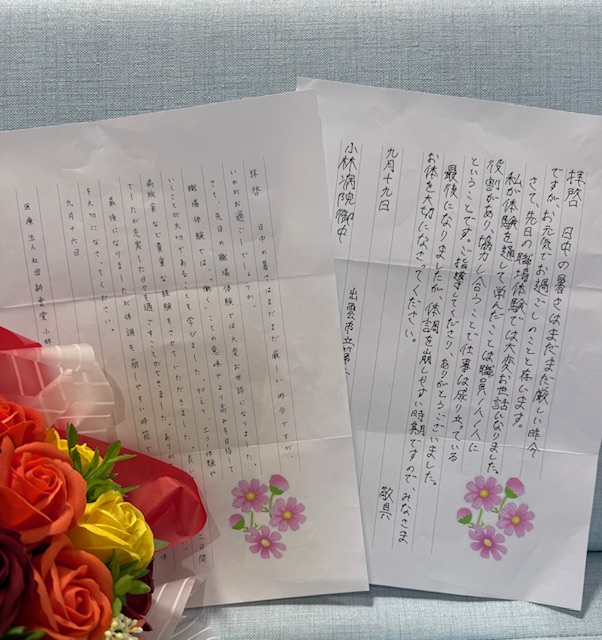 拝啓 日中の暑さはまだまだ厳しい昨今
ですが、お元気でお過ごしのことと存じます。
さて、先日の職場体験では大変、お世話になりました。
私が体験を通して学んだことは職員一人一人に
役割があり、協力し合うことで仕事は成り立っている
ということです。ご指導してくださり、ありがとうございました。
最後になりましたが、体調を崩しやすい時期ですので、みなさま
お体を大切になさってください。
敬具
九月十九日
出雲市立第
小林病院御中
拝啓 日中の暑さはまだまだ厳しい昨今ですが、
いかがお過ごしでしょうか。
さて、先日の職場体験では大変お世話になりました。
職場体験では、働くことの意味やより高みを目指して
いくことが大切であることを学びました。加えて、エコー体験や
など貴重な経験をさせていただきました。
三日間
でしたが充実した日々を過ごすことができました。
最後になりましたが体調を崩しやすい時節で
体
を大切になさってください。
九月十六日
医療法人社団耕雲堂小林